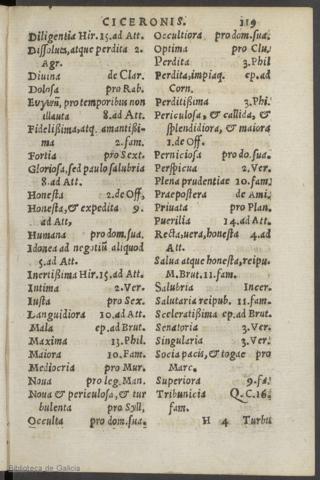 CICERONIS. 119
Diligentia Hir. 15. ad Att.
Dissoluta, atque perdita 2.
Agr.
Diuina de Clar.
Dolosa pro Rab.
pro temporibus non
illauta 8. ad Att.
Fidelißima, atq; amantißi-
ma 2. fam.
Fortia pro Sext.
Gloriosa, sed paulo salubria
8. ad Att.
Honesta 2. de Off,
Honesta, & expedita 9.
ad Att,
Humana pro dom. sua.
Idonea ad negotiũ aliquod
5. ad Att.
Inertißima Hir. 15. ad Att.
Intima 2. Ver.
Iusta pro Sex.
Languidiora 10. ad Att.
Mala ep. ad Brut.
Maxima 13. Phil.
Maiora 10. Fam.
Mediocria pro Mur.
Noua pro leg. Man.
Noua & periculosa, & tur
bulenta pro Syll,
Occulta pro dom. sua.
Occultiora pro dom. sua.
Optima pro Clu,
Perdita 3. Phil
Perdita, impiaq. ep. ad
Corn.
Perditißima 3. Phi.
Periculosa, & callida, &
splendidiora, & maiora
1. de Off.
Perniciosa pro do. sua.
Perspicua 2, Ver.
Plena prudentiae 10. fam;
Praepostera de Ami.
Priuata pro Plan.
Puerilia 14. ad Att.
Recta, uera, honesta 4. ad
Att.
Salua atque honesta, reipu.
M. Brut. 11. fam.
Salubria Incer.
Salutaria reipub. 11. fam.
Sceleratißima ep. ad Brut.
Senatoria 3. Ver.
Singularia 3. Ver.
Socia pacis, & togae pro
Marc.
Superiora 9. fa.
Tribunicia Q. C. 16.
fam.
H 4 Turbu
Biblioteca de Galicia